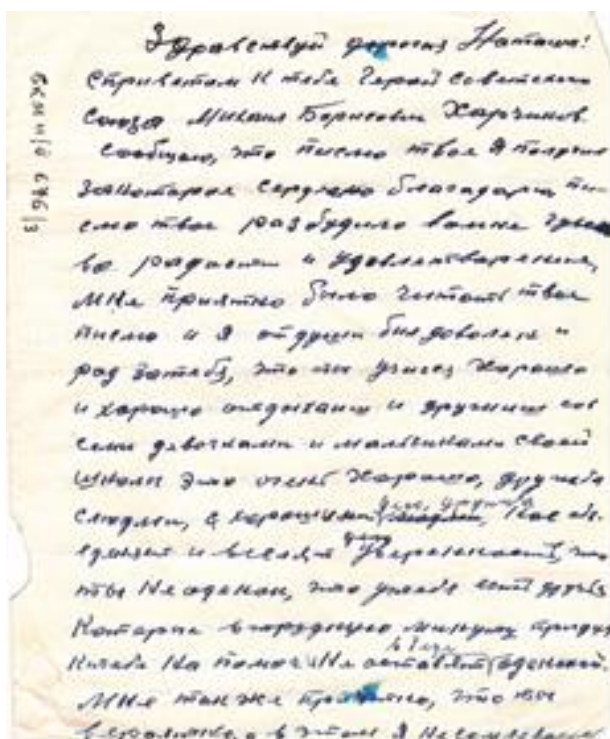 Здравствуй дорогая Наташа!
С приветом к тебе Герой Советского
Союза Михаил Борисович
Сообщаю, что письмо твое я получил
за которое сердечно благодарю, пи-
сьмо твое разбудило во мне чувс
во радости и удовлетворения,
мне приятно было читать твое
письмо и я от души был доволен и
рад за тебя, что ты учишся хорошо
и хорошо и дружишь со
семи девочками и мальчиками своей
школы это очень хорошо, дружба
с людми, с хорошими
и вселяет уверенность, что
ты не одинок, что у тебя есть друзья
которые в трудную минуту придут
к тебе на помощь не оставят в беде
мне так же приятно, что ты
а в этом я не сомневаюсь